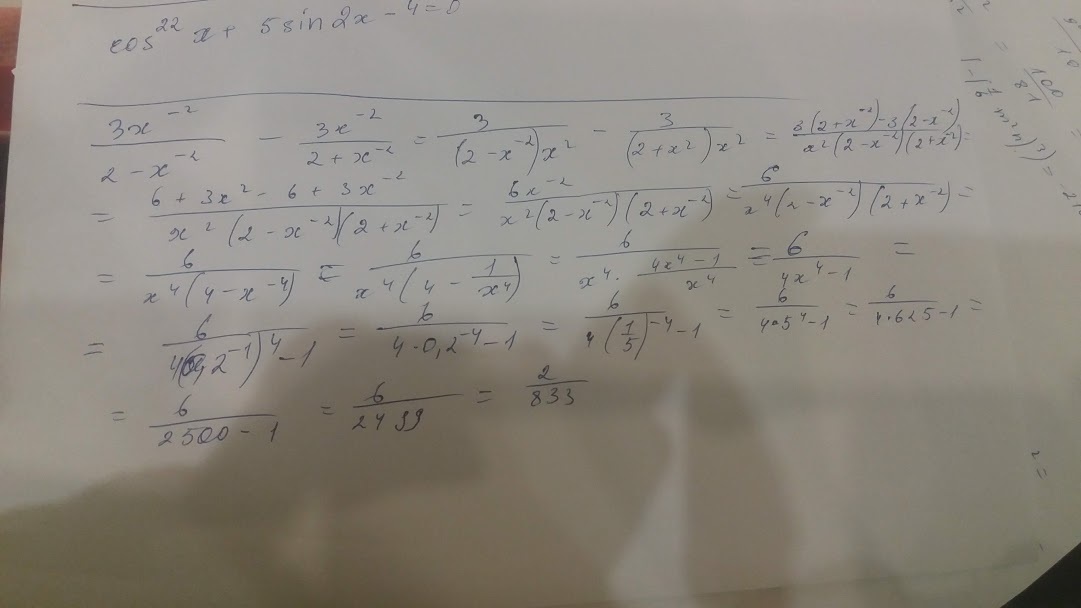 cos²² x + 5 sin 2x - 4 = 0
3x⁻²/(2 - x⁻²) - 3x⁻²/(2 + x⁻²) = 3/((2 - x⁻²)x²) - 3/((2 + x²)x²) = (3(2 + x⁻²) - 3(2 - x⁻²))/(x²(2 - x⁻²)(2 + x⁻²)) =
= (6 + 3x² - 6 + 3x⁻²)/(x²(2 - x⁻²)(2 + x⁻²)) = 6x⁻²/(x²(2 - x⁻²)(2 + x⁻²)) = 6/(x⁴(2 - x⁻²)(2 + x⁻²)) =
= 6/(x⁴(4 - x⁻⁴)) = 6/(x⁴(4 - 1/x⁴)) = 6/(x⁴ · (4x⁴ - 1)/x⁴) = 6/(4x⁴ - 1) =
= 6/(4(0,2⁻¹)⁴ - 1) = 6/(4 · 0,2⁻⁴ - 1) = 6/(4(1/5)⁻⁴ - 1) = 6/(4 · 5⁴ - 1) = 6/(4 · 625 - 1) =
= 6/(2500 - 1) = 6/2499 = 2/833
100
81